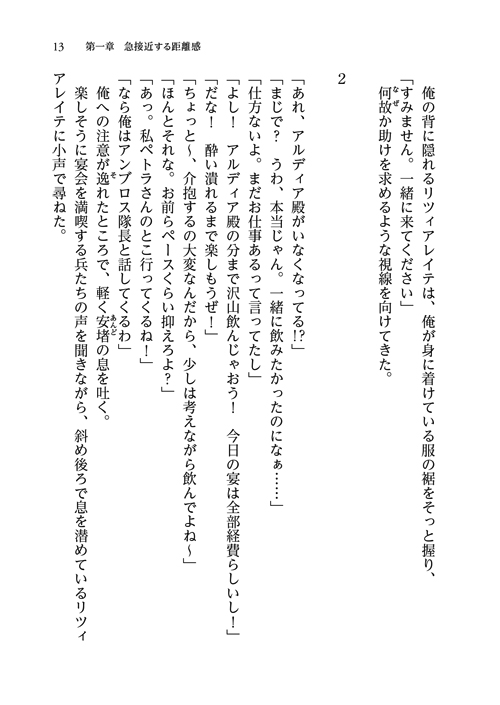 13　第一章　急接近する距離感
　俺の背に隠れるリツィアレイテは、俺が身に着けている服の裾をそっと握り、
「すみません。一緒に来てください」
　何故か助けを求めるような視線を向けてきた。
2
「あれ、アルディア殿がいなくなってる!?」
「まじで？　うわ、本当じゃん。一緒に飲みたかったのになぁ……」
「仕方ないよ。まだお仕事あるって言ってたし」
「よし！　アルディア殿の分まで沢山飲んじゃおう！　今日の宴は全部経費らしいし！」
「だな！　酔い潰れるまで楽しもうぜ！」
「ちょっと〜、介抱するの大変なんだから、少しは考えながら飲んでよね〜」
「ほんとそれな。お前らペースくらい抑えろよ？」
「あっ。私ペトラさんのとこ行ってくるね！」
「なら俺はアンブロス隊長と話してくるわ」
　俺への注意が逸れたところで、軽く安堵の息を吐く。
　楽しそうに宴会を満喫する兵たちの声を聞きながら、斜め後ろで息を潜めているリツィ
アレイテに小声で尋ねた。